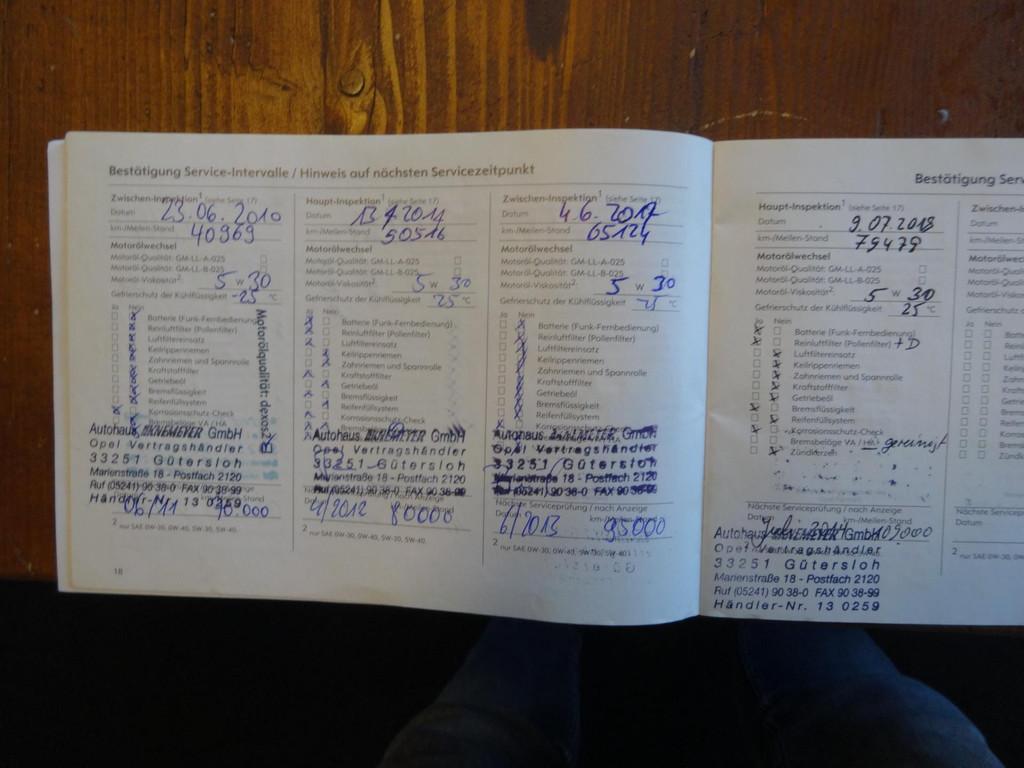 Bestätigung Service-Intervalle / Hinweis auf nächsten Servicezeitpunkt
Zwischen-Inspektion¹ (siehe Seite 17)
Datum 23.06.2010
km-/Meilen-Stand 40969
Motorölwechsel
Motoröl-Qualität: GM-LL-A-025
Motoröl-Qualität: GM-LL-B-025
Motoröl-Viskosität²: 5 W 30
Gefrierschutz der Kühlflüssigkeit -25 °C
Ja Nein
Batterie (Funk-Fernbedienung)
Reinluftfilter (Pollenfilter)
Luftfiltereinsatz
Keilrippenriemen
Zahnriemen und Spannrolle
Kraftstofffilter
Getriebeöl
Bremsflüssigkeit
Reifenfüllsystem
Korrosionsschutz-Check
Bremsbeläge VA / HA
Motorölqualität: dexos2
Autohaus GmbH
Opel Vertragshändler
33251 Gütersloh
Marienstraße 18 - Postfach 2120
Ruf (05241) 90 38-0 FAX 90 38-99
Händler-Nr. 13 0259
06/11
² nur SAE 0W-30, 0W-40, 5W-30, 5W-40.
18
Haupt-Inspektion¹ (siehe Seite 17)
Datum
km-/Meilen-Stand 50516
Motorölwechsel
Motoröl-Qualität: GM-LL-A-025
Motoröl-Qualität: GM-LL-B-025
Motoröl-Viskosität²: 5 W 30
Gefrierschutz der Kühlflüssigkeit 25 °C
Ja Nein
Batterie (Funk-Fernbedienung)
Reinluftfilter (Pollenfilter)
Luftfiltereinsatz
Keilrippenriemen
Zahnriemen und Spannrolle
Kraftstofffilter
Getriebeöl
Bremsflüssigkeit
Reifenfüllsystem
Korrosionsschutz-Check
Autohaus GmbH
Opel Vertragshändler
33251 Gütersloh
Marienstraße 18 - Postfach 2120
Ruf (05241) 90 38-0 FAX 90 38-99
4/2012 80000
² nur SAE 0W-30, 0W-40, 5W-30, 5W-40.
Zwischen-Inspektion¹ (siehe Seite 17)
Datum 4.6.
km-/Meilen-Stand 65124
Motorölwechsel
Motoröl-Qualität: GM-LL-A-025
Motoröl-Qualität: GM-LL-B-025
Motoröl-Viskosität²: 5 W 30
Gefrierschutz der Kühlflüssigkeit °C
Ja Nein
Batterie (Funk-Fernbedienung)
Reinluftfilter (Pollenfilter)
Luftfiltereinsatz
Keilrippenriemen
Zahnriemen und Spannrolle
Kraftstofffilter
Getriebeöl
Bremsflüssigkeit
Reifenfüllsystem
Korrosionsschutz-Check
Autohaus GmbH
Opel Vertragshändler
33251 Gütersloh
Marienstraße 18 - Postfach 2120
Ruf (05241) 90 38-0 FAX 90 38-99
Nächste Serviceprüfung
Datum km-/Meilen-Stand
6/2013 95000
² nur SAE 0W-30, 0W-40, 5W-30, 5W-40.
Bestätigung Serv
Haupt-Inspektion¹ (siehe Seite 17)
Datum 9.07.2013
km-/Meilen-Stand 79479
Motorölwechsel
Motoröl-Qualität: GM-LL-A-025
Motoröl-Qualität: GM-LL-B-025
Motoröl-Viskosität²: 5 W 30
Gefrierschutz der Kühlflüssigkeit 25 °C
Ja Nein
Batterie (Funk-Fernbedienung)
Reinluftfilter (Pollenfilter) + D
Luftfiltereinsatz
Keilrippenriemen
Zahnriemen und Spannrolle
Kraftstofffilter
Getriebeöl
Bremsflüssigkeit
Reifenfüllsystem
Korrosionsschutz-Check
Bremsbeläge VA / HA gereinigt
Zündkerzen
Nächste Serviceprüfung / nach Anzeige
Datum km-/Meilen-Stand
Juli 2014 109000
Autohaus GmbH
Opel Vertragshändler
33251 Gütersloh
Marienstraße 18 - Postfach 2120
Ruf (05241) 90 38-0 FAX 90 38-99
Händler-Nr. 13 0259
Zwischen-I
Datum
km-/Meilen
Motorölwec
Motoröl-Qual
Motoröl-Qual
Motoröl-Visk
Gefrierschutz
Ja Nein
Nächste Service
Datum